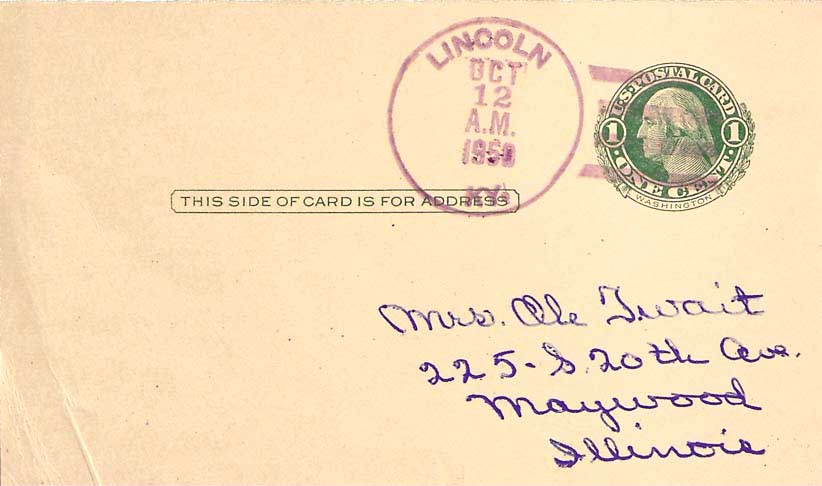 LINCOLN
OCT
12
A.M.
1950
KY.
U.S. POSTAL CARD
1 1
ONE CENT
WASHINGTON
THIS SIDE OF CARD IS FOR ADDRESS
Mrs. Ole Twait
225-S. 20th Ave.
Maywood
Illinois